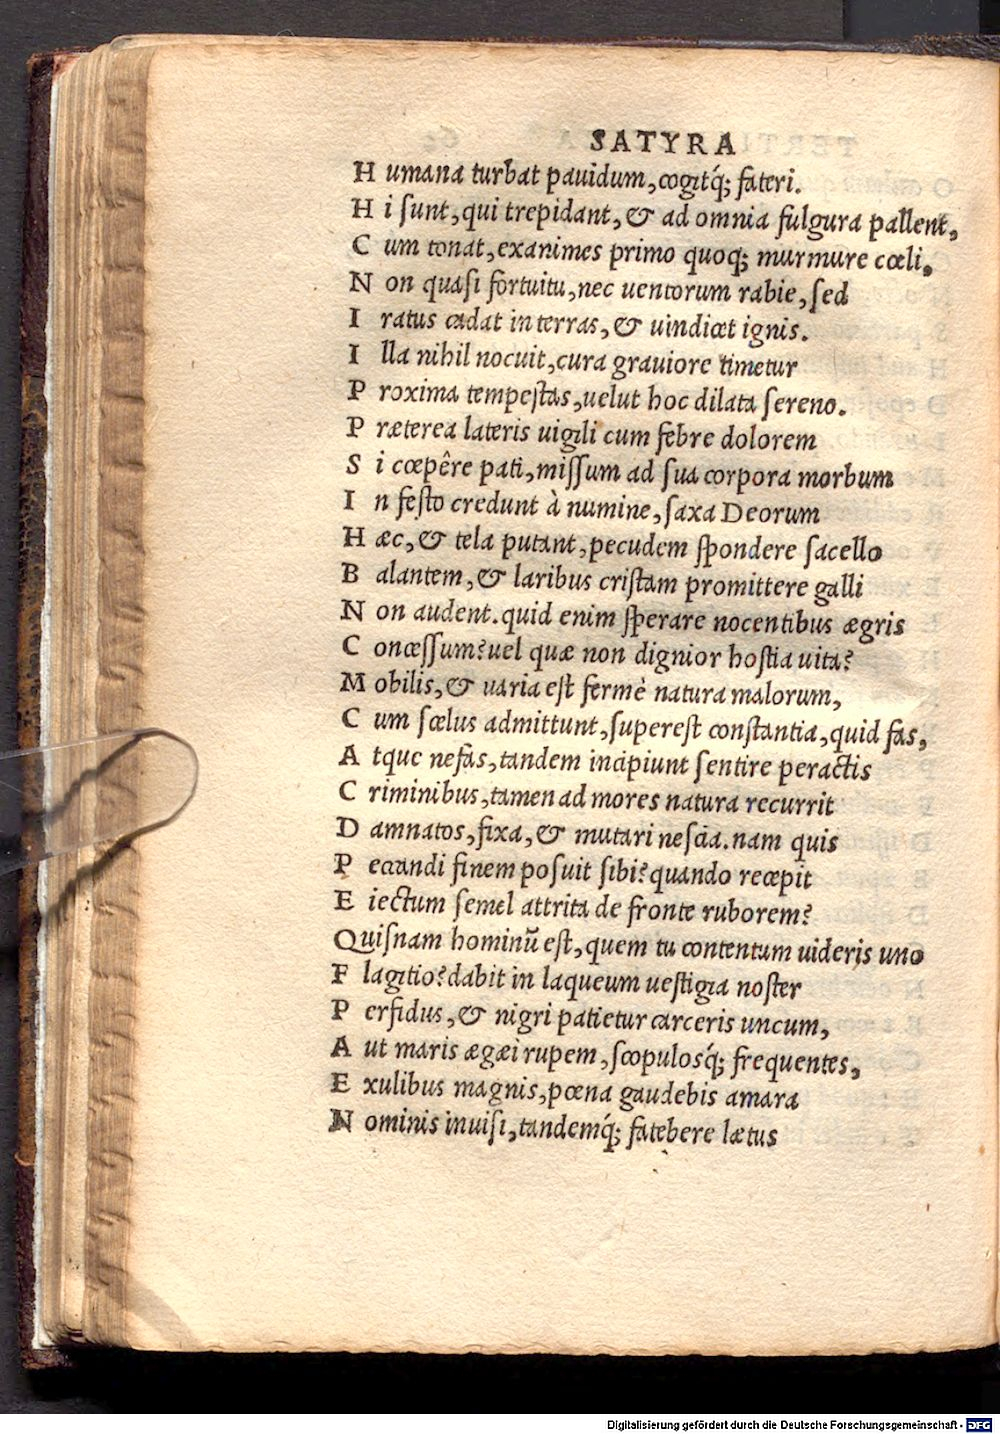 SATYRA
H umana turbat pauidum, cogitq́; fateri.
H i sunt, qui trepidant, & ad omnia fulgura pallent,
C um tonat, exanimes primo quoq; murmure cœli,
N on quasi fortuitu, nec uentorum rabie, sed
I ratus cadat in terras, & uindicet ignis.
I lla nihil nocuit, cura grauiore timetur
P roxima tempestas, uelut hoc dilata sereno.
P ræterea lateris uigili cum febre dolorem
S i cœpêre pati, missum ad sua corpora morbum
I n festo credunt à numine, saxa Deorum
H æc, & tela putant, pecudem spondere sacello
B alantem, & laribus cristam promittere galli
N on audent. quid enim sperare nocentibus ægris
C oncessum? uel quæ non dignior hostia uita?
M obilis, & uaria est fermè natura malorum,
C um scelus admittunt, superest constantia, quid fas,
A tque nefas, tandem incipiunt sentire peractis
C riminibus, tamen ad mores natura recurrit
D amnatos, fixa, & mutari nescia. nam quis
P eccandi finem posuit sibi? quando recepit
E iectum semel attrita de fronte ruborem?
Quisnam hominū est, quem tu contentum uideris uno
F lagitio? dabit in laqueum uestigia noster
P erfidus, & nigri patietur carceris uncum,
A ut maris ægæi rupem, scopulosq́; frequentes,
E xulibus magnis, pœna gaudebis amara
N ominis inuisi, tandemq́; fatebere lætus
Digitalisierung gefördert durch die Deutsche Forschungsgemeinschaft - DFG